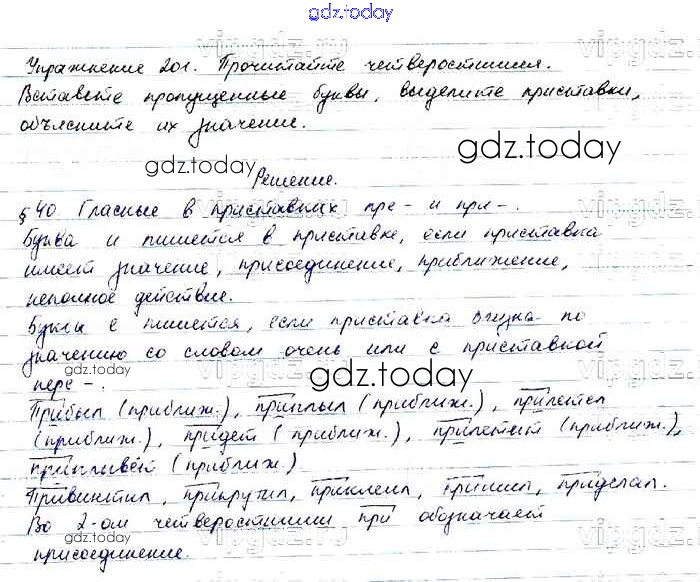 gdz.today
Упражнение 201. Прочитайте четверостишия.
Вставьте пропущенные буквы, выделите приставки,
объясните их значение.
gdz.today
gdz.today
Решение.
§ 40. Гласные в приставках пре- и при-.
Буква и пишется в приставке, если приставка
имеет значение, присоединение, приближение,
неполное действие.
Буква е пишется, если приставка близка по
значению со словом очень или с приставкой
пере-.
gdz.today
gdz.today
Прибыл (приближ.), приплыл (приближ.), прилетел
(приближ.), придет (приближ.), прилетит (приближ.),
приплывёт (приближ.)
Привинтил, прикрутил, приклеил, пришил, приделал.
Во 2-ом четверостишии при обозначает
присоединение.
vipgdz.ru
vipgdz.ru
vipgdz.ru
vipgdz.ru
vipgdz.ru
vipgdz.ru